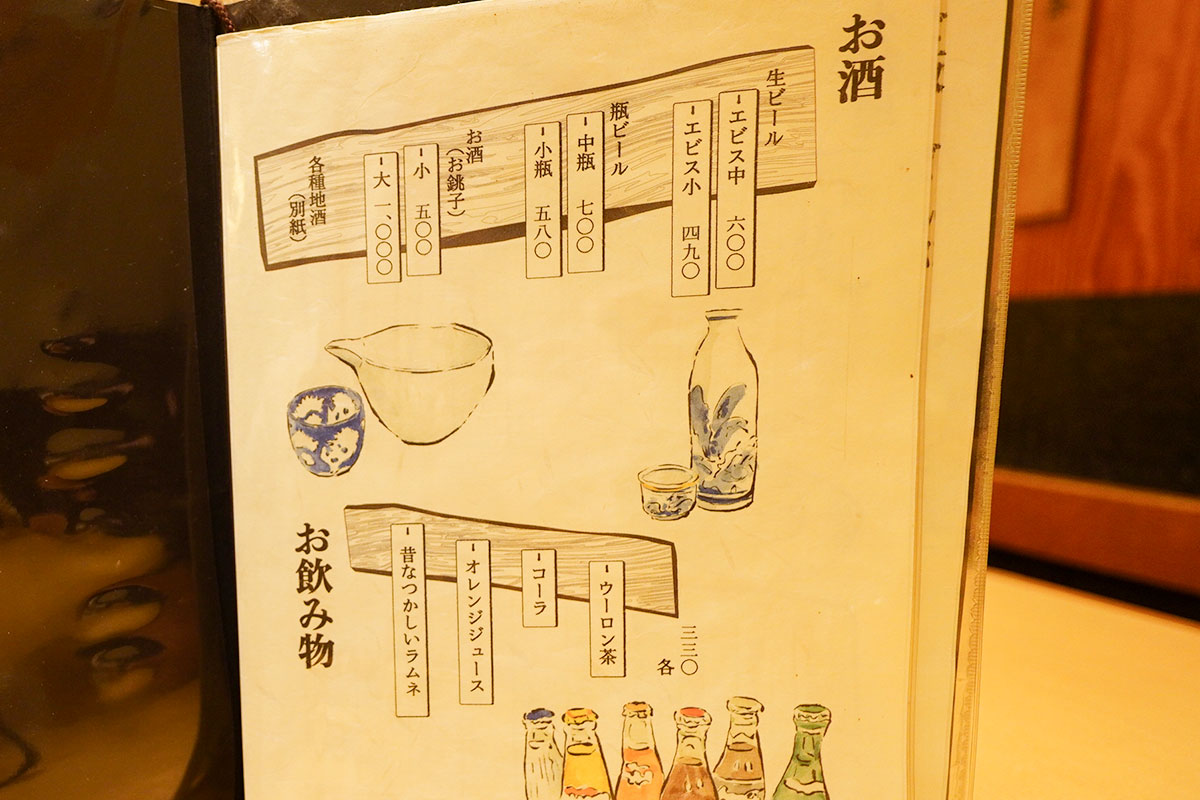 お酒
生ビール
エビス中 六〇〇
エビス小 四九〇
瓶ビール
中瓶 七〇〇
小瓶 五八〇
お酒
（お銚子）
小 五〇〇
大 一、〇〇〇
各種地酒
（別紙）
お飲み物
各
三三〇
ウーロン茶
コーラ
オレンジジュース
昔なつかしいラムネ